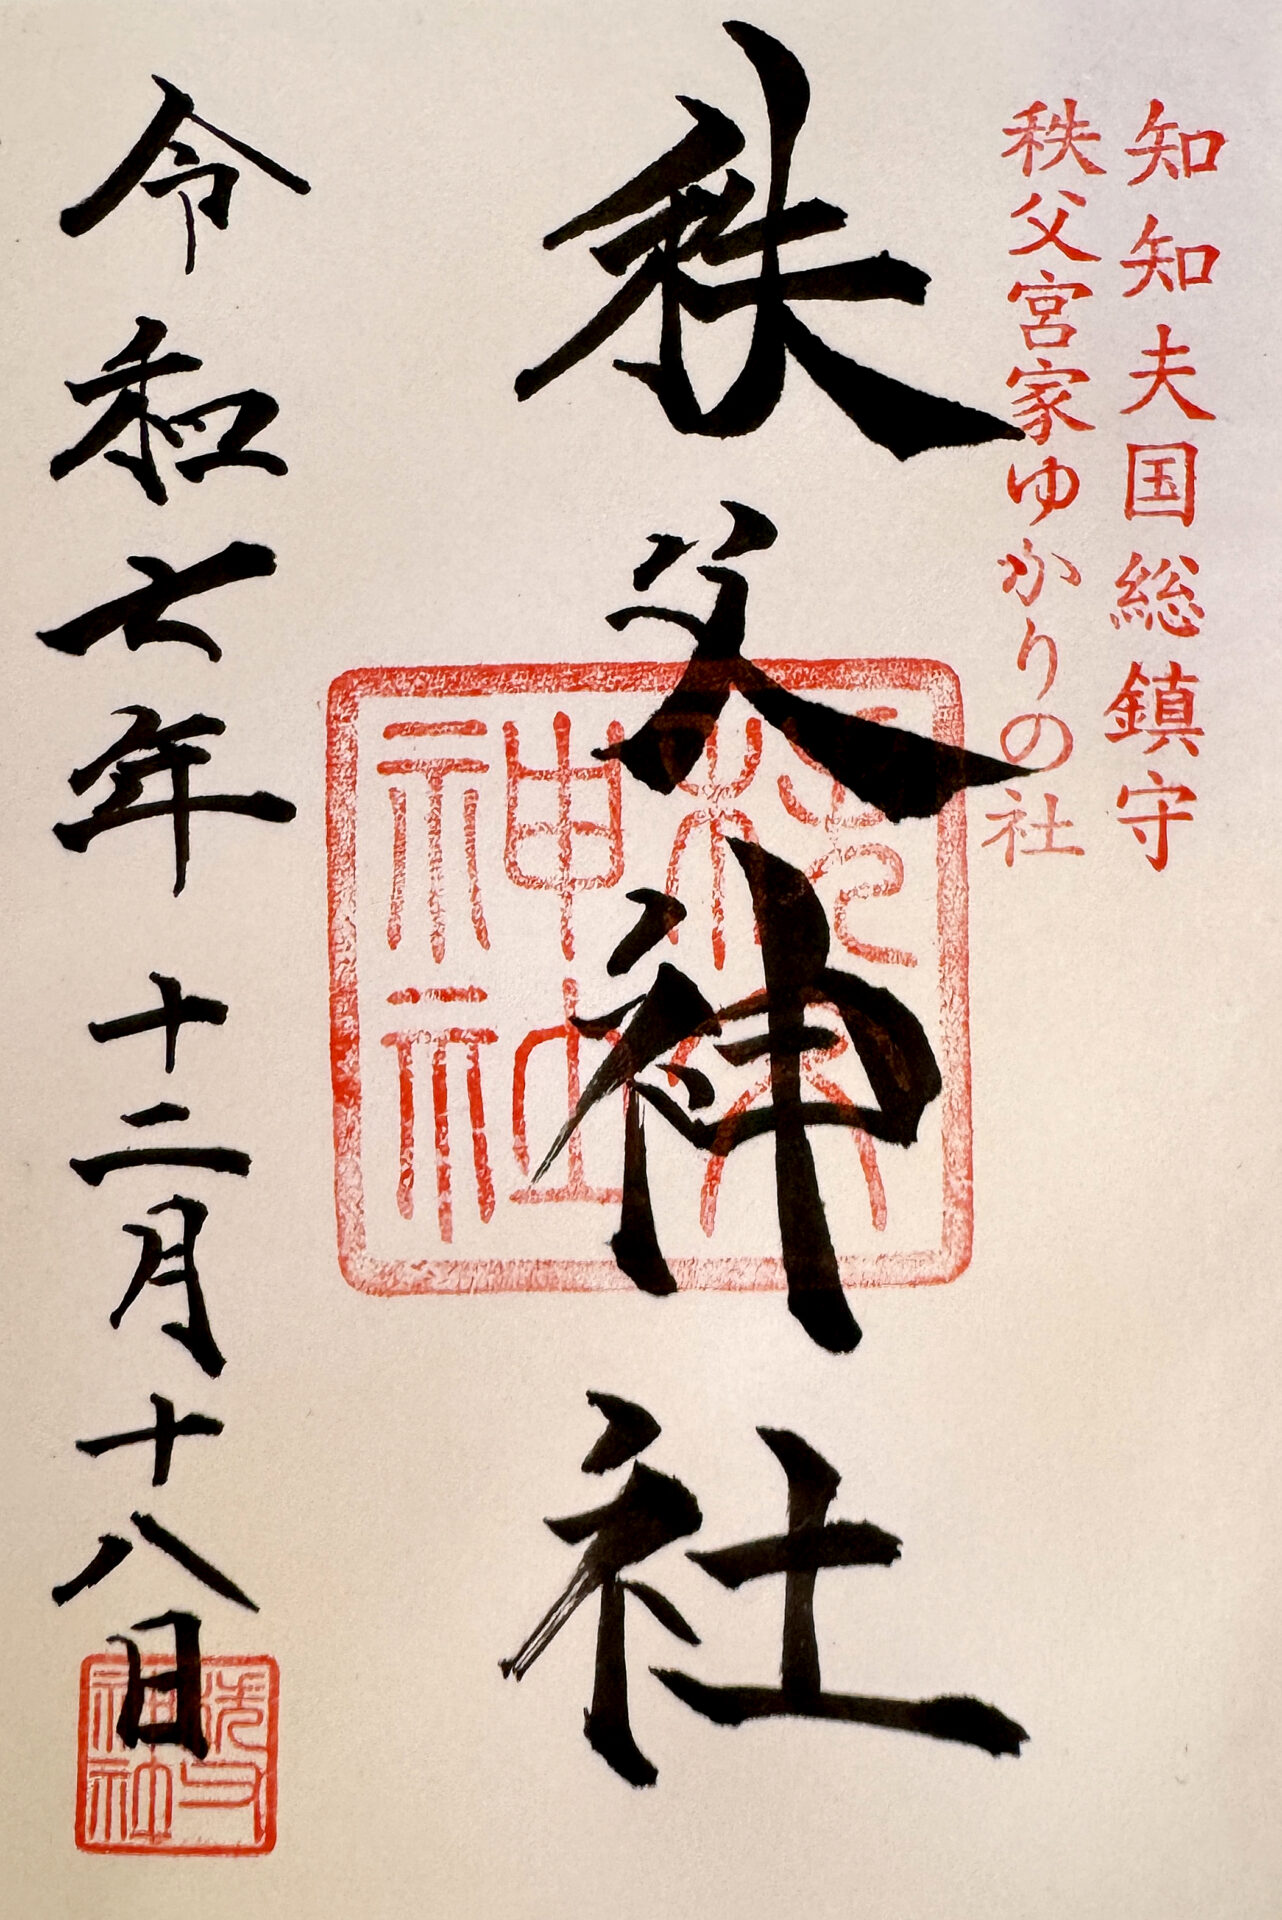 知知夫国総鎮守
秩父宮家ゆかりの社
秩父神社
秩父神社
令和七年十二月十八日
神社